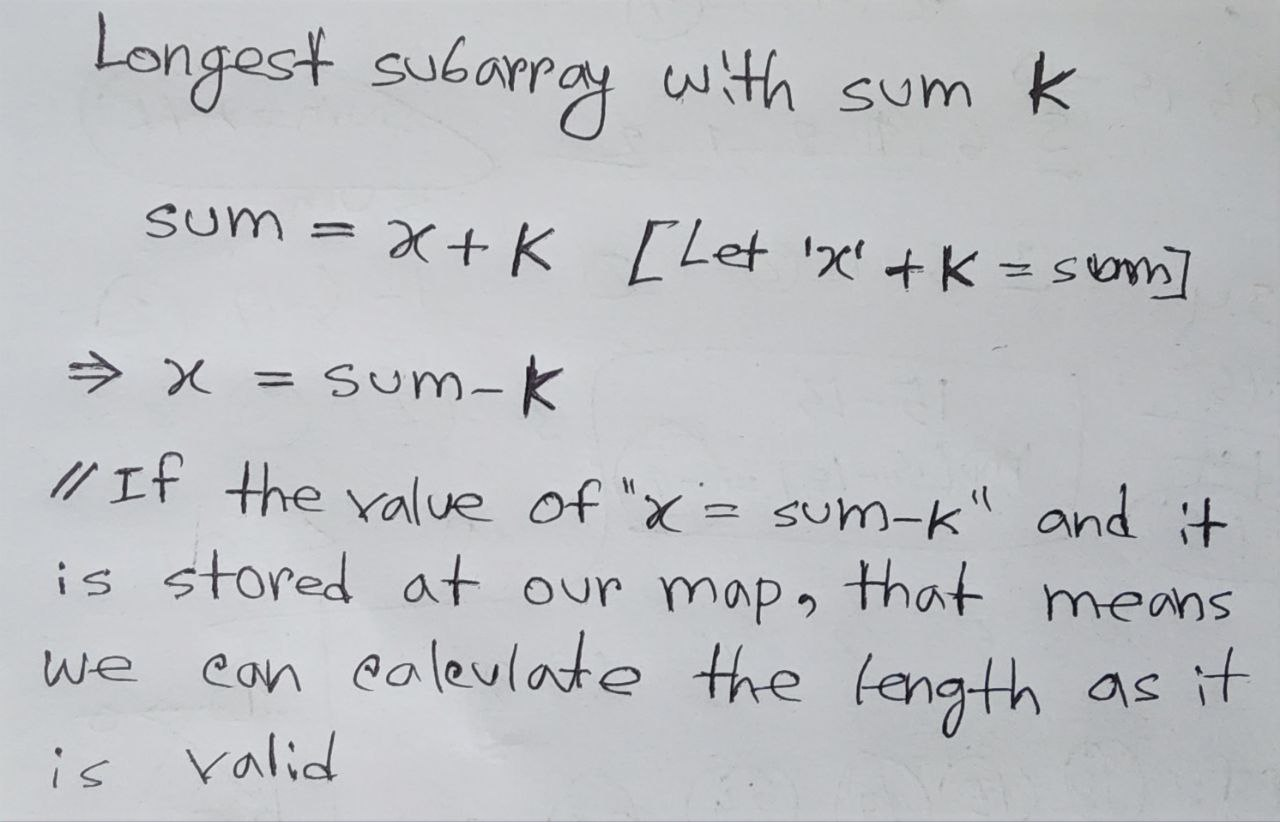 Longest subarray with sum K
sum = x + K [Let 'x' + K = sum]
⇒ x = sum - K
// If the value of "x = sum-k" and it
is stored at our map, that means
we can calculate the length as it
is valid